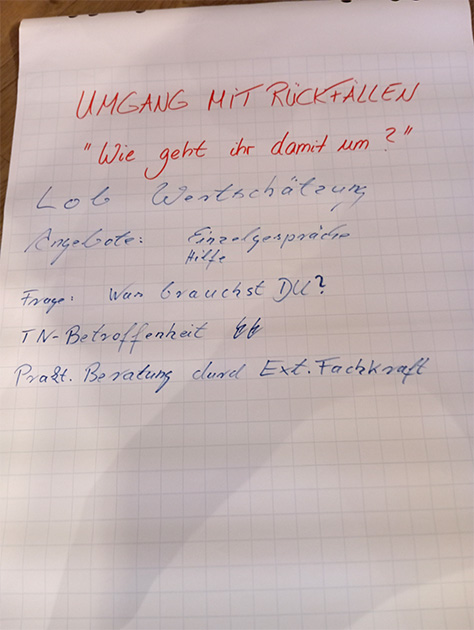 UMGANG MIT RÜCKFÄLLEN
"Wie geht ihr damit um?"
Lob Wertschätzung
Angebote: Einzelgespräche
Hilfe
Frage: Was brauchst DU?
TN-Betroffenheit
Prakt. Beratung durch Ext. Fachkraft